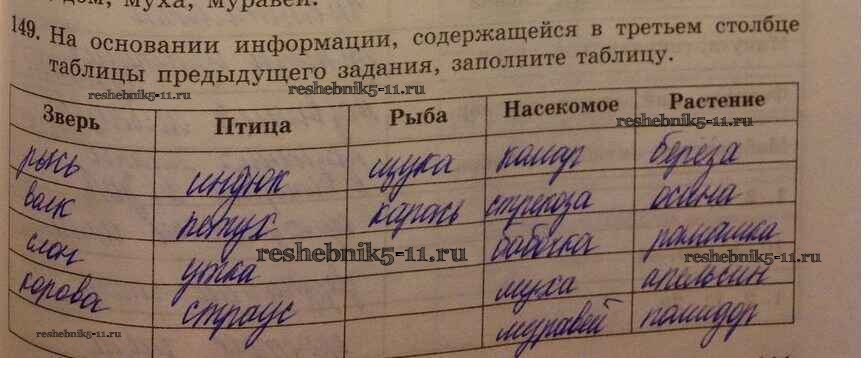 дом, муха, муравей.
149. На основании информации, содержащейся в третьем столбце
таблицы предыдущего задания, заполните таблицу.
reshebnik5-11.ru reshebnik5-11.ru
Зверь Птица Рыба Насекомое Растение
reshebnik5-11.ru
рысь индюк щука комар береза
волк петух карась стрекоза осина
слон утка бабочка ромашка
reshebnik5-11.ru reshebnik5-11.ru
корова страус муха апельсин
муравей помидор
reshebnik5-11.ru